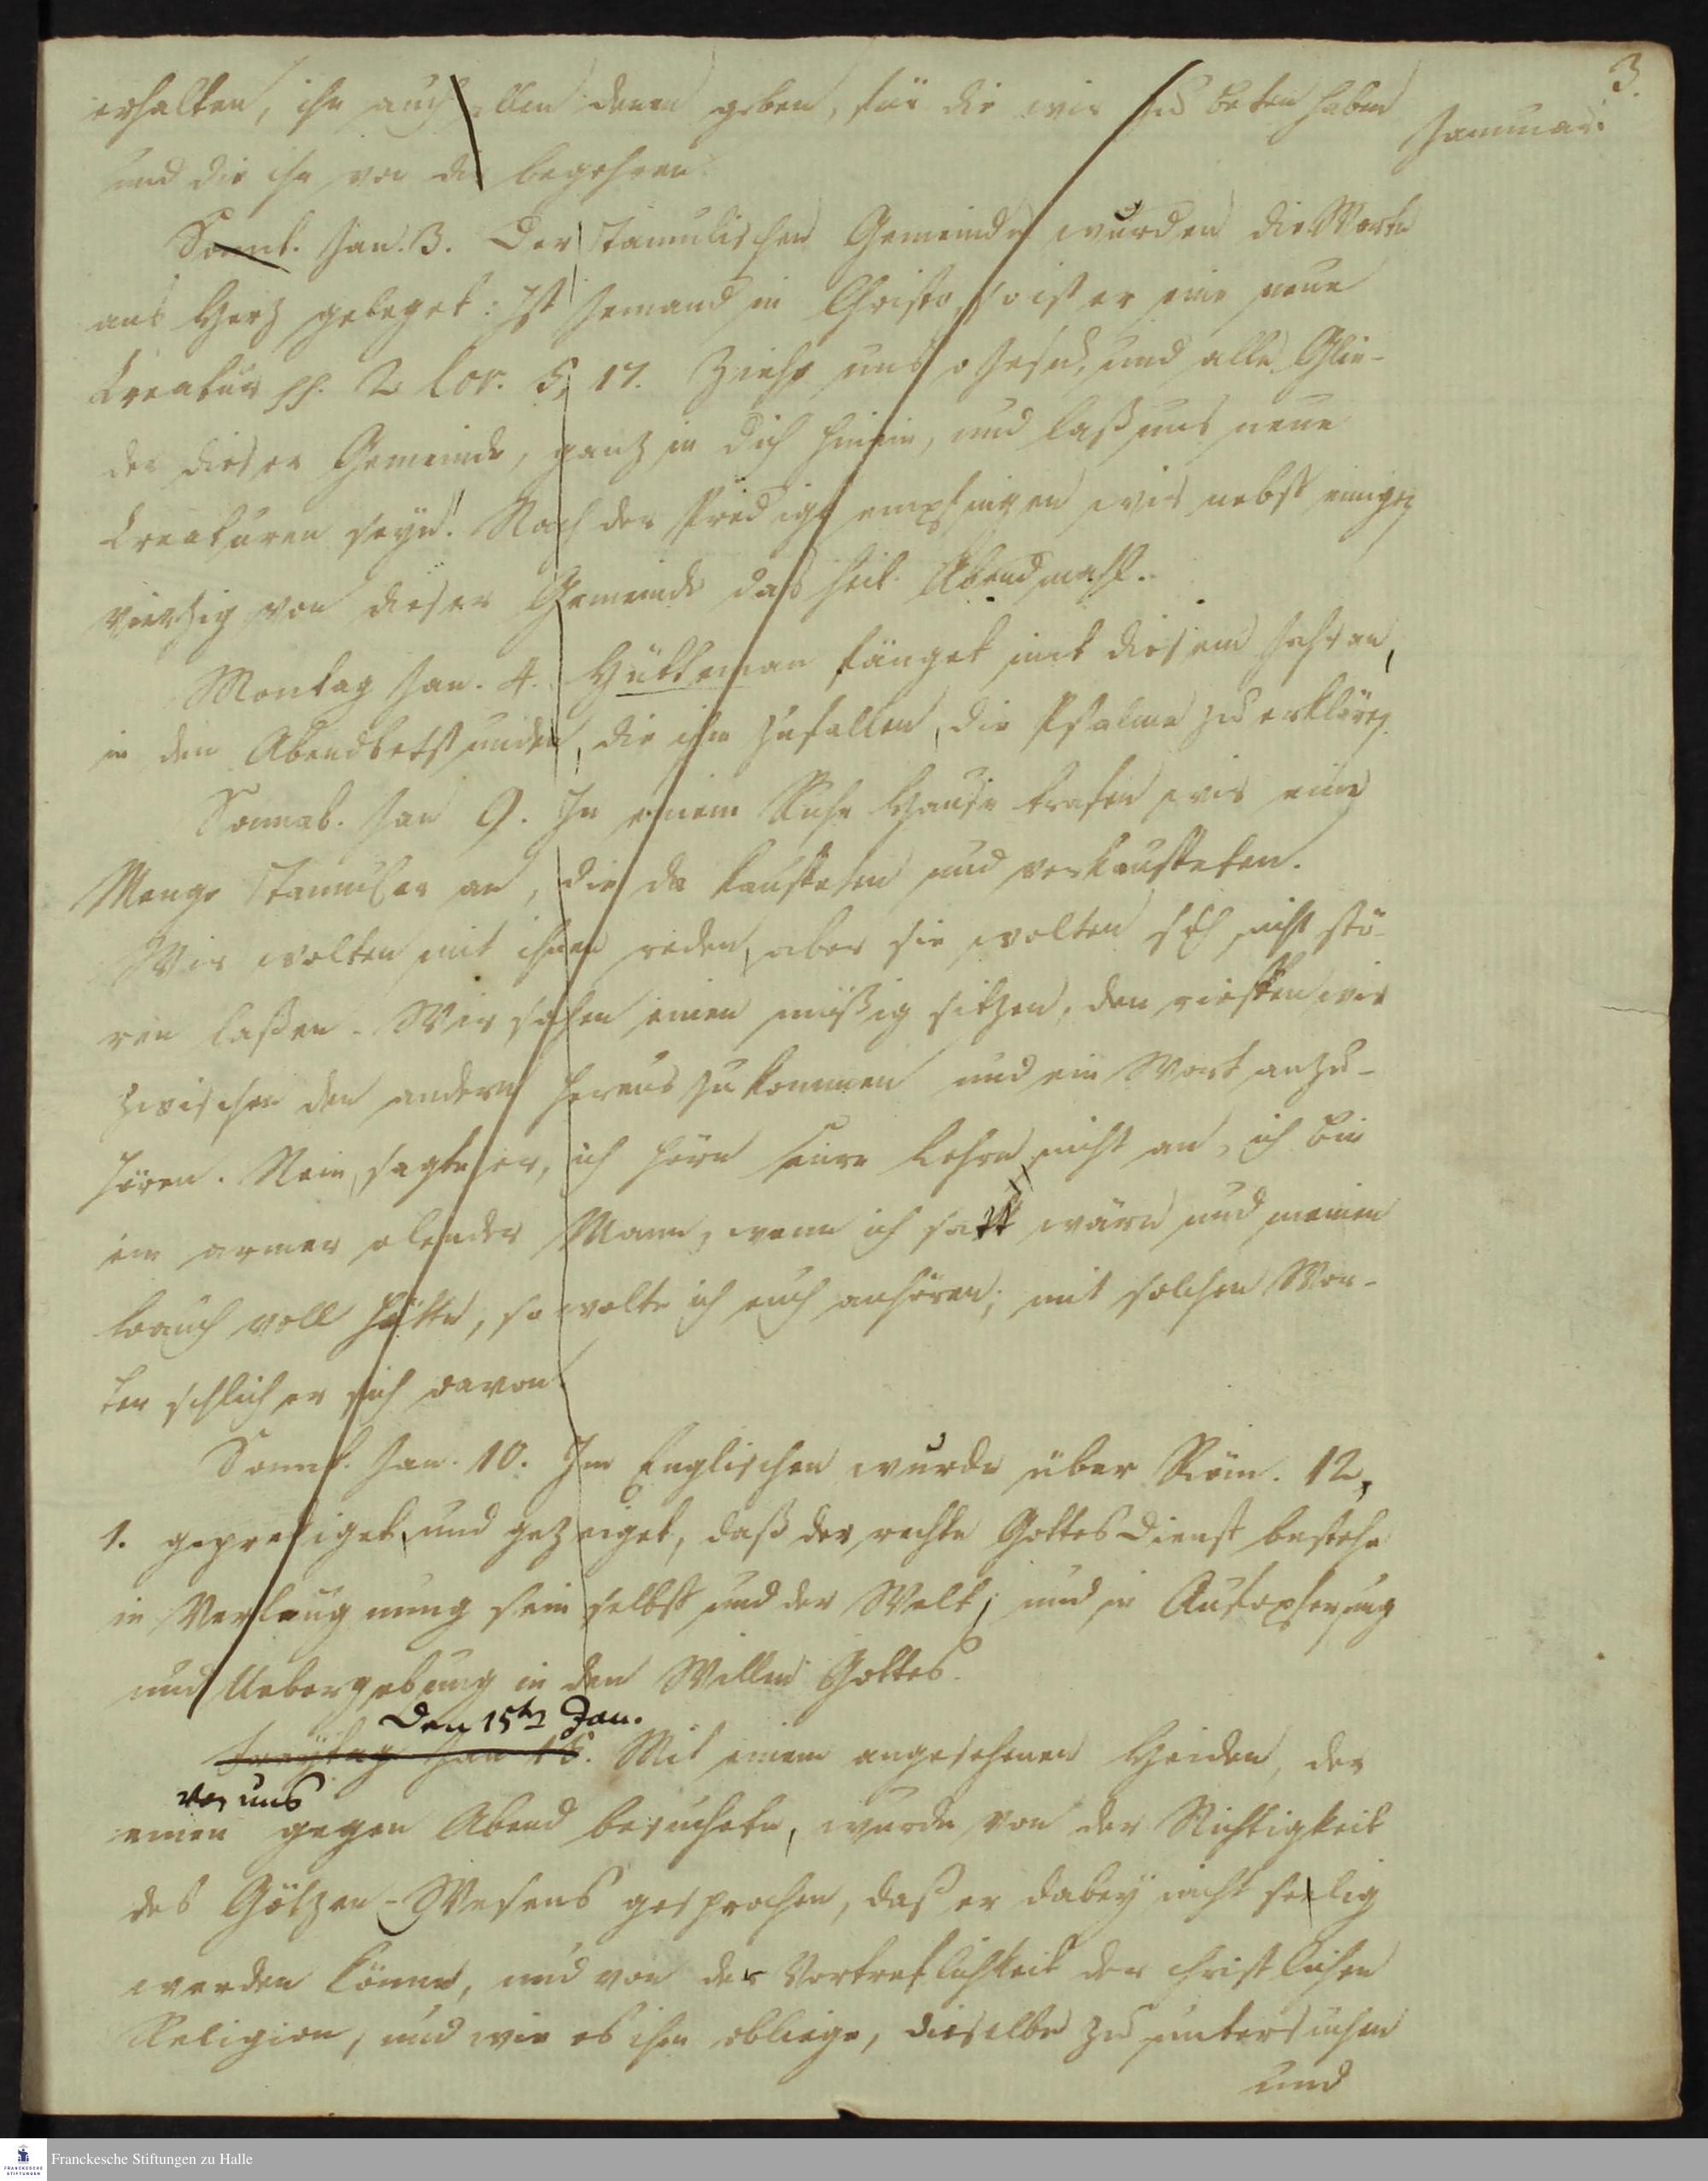 3.
Januar.
erhalten, ihn auch allen denen geben, für die wir zu beten haben
und die ihn von dir begehren.
Sonnt. Jan. 3. Der Tamulischen Gemeinde wurden die Worte
ans Herz geleget: Ist jemand in Christo, so ist er eine neue
Creatur pp. 2 Cor. 5, 17. Ziehe uns o Jesu, und alle Glie-
der dieser Gemeinde, ganz in dich hinein, und laß uns neue
Creaturen seyn! Nach der Predigt empfingen wir nebst einigen
vierzig von dieser Gemeinde das heil. Abendmahl.
Montag Jan. 4. Hütteman fänget mit diesem Jahr an,
in den Abendbetstunden, die ihm zufallen, die Psalme zu erklären.
Sonnab. Jan 9. In einem Ruhe Hause trafen wir eine
Menge Tamuler an, die da kaufteten und verkaufteten.
Wir wolten mit ihnen reden, aber sie wolten sich nicht stö-
ren laßen. Wir sahen einen müßig sitzen, den riefen wir
zwischen den andern heraus zu kommen und ein Wort anzu-
hören. Nein, sagte er, ich höre eure Lehre nicht an, ich bin
ein armer elender Mann, wenn ich satt wäre und meinen
Bauch voll hätte, so wolte ich euch anhören; mit solchen Wor-
ten schlich er sich davon.
Sonnt. Jan. 10. Im Englischen wurde über Röm. 12,
1. geprediget, und gezeiget, daß der rechte Gottesdienst bestehe
in Verleugnung sein selbst und der Welt, und in Aufopferung
und Uebergebung in den Willen Gottes.
Den 15ten Jan.
Freytag Jan 15. Mit einem angesehenen Heiden, der
uns
einen gegen Abend besuchete, wurde von der Nichtigkeit
des Götzen-Wesens gesprochen, daß er dabey nicht seelig
werden könne, und von der Vortreflichkeit der christlichen
Religion, und wie es ihm obliege, dieselbe zu untersuchen
und
Franckesche Stiftungen zu Halle